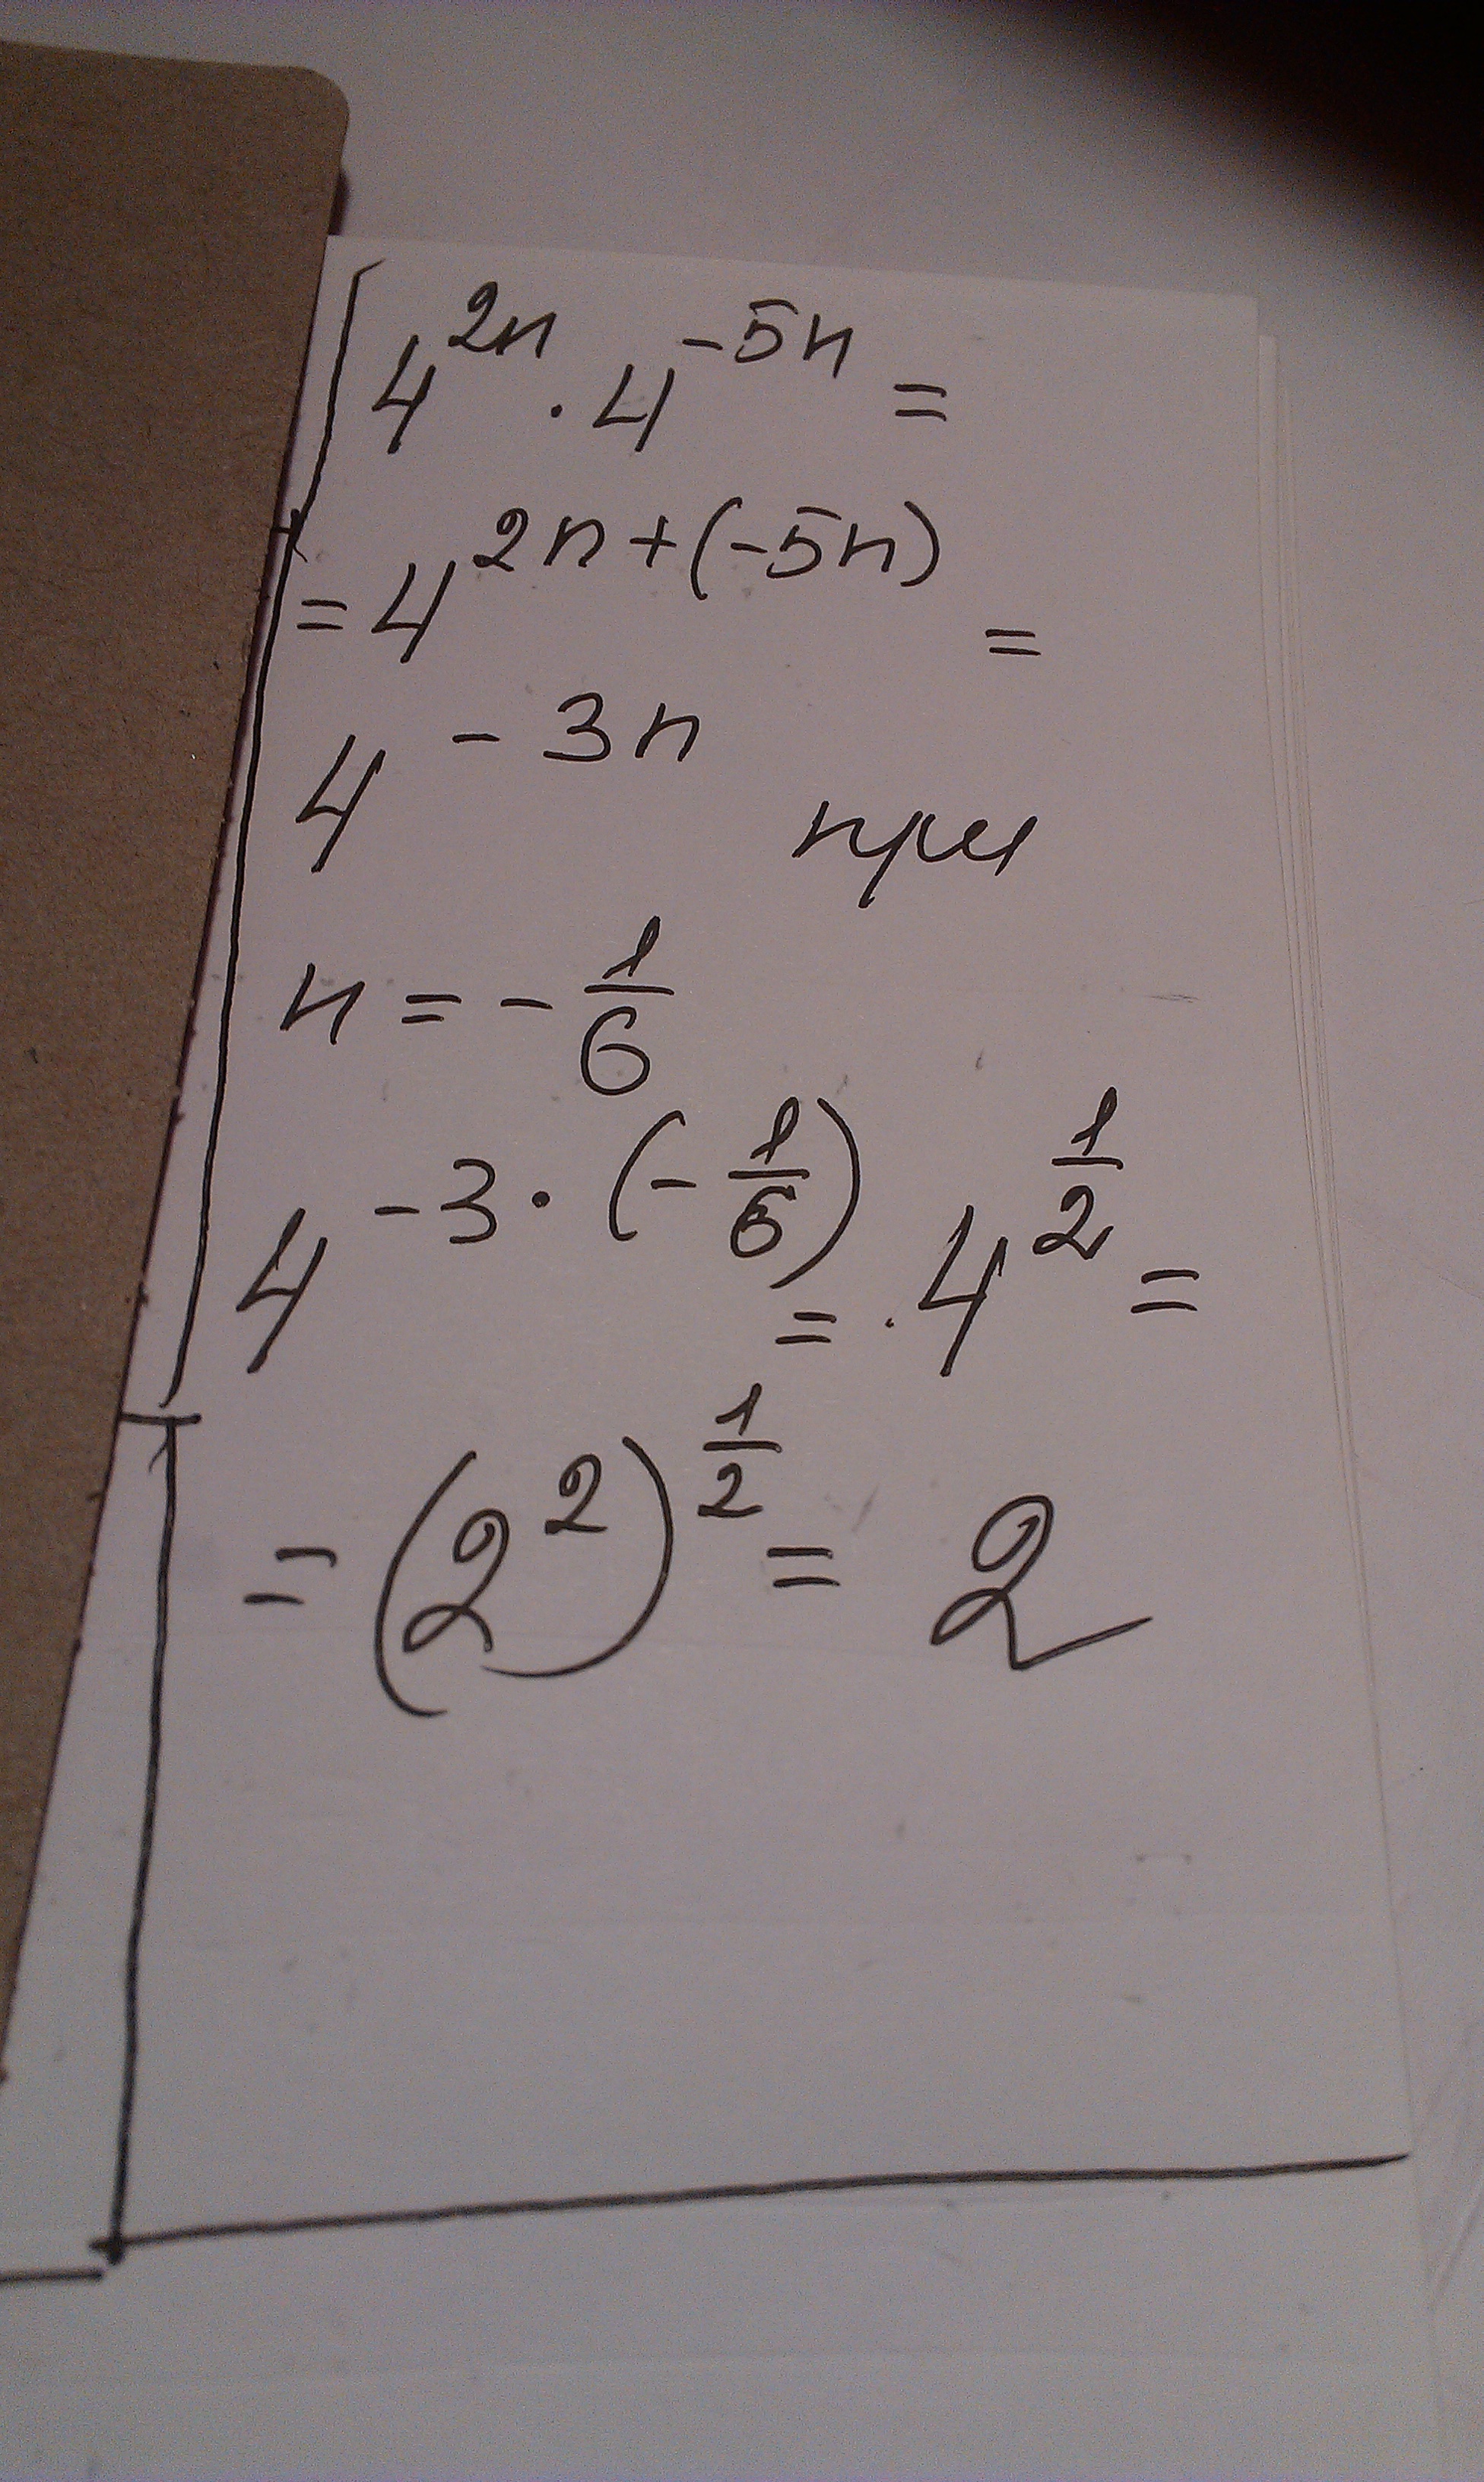 4^{2n} · 4^{-5n} =
= 4^{2n+(-5n)} =
4^{-3n} при
n = -\frac{1}{6}
4^{-3·(-\frac{1}{6})} = · 4^{\frac{1}{2}} =
= (2^2)^{\frac{1}{2}} = 2